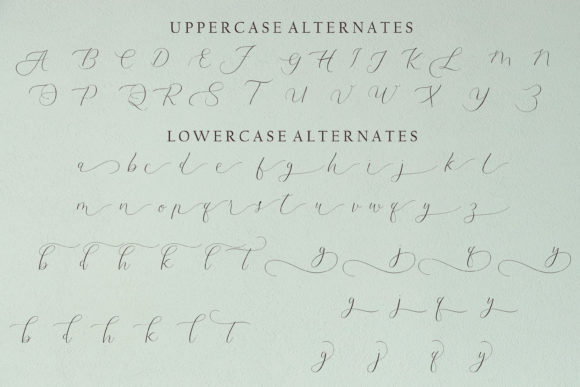 UPPERCASE ALTERNATES
A B C D E F G H I J K L M N
O P Q R S T U V W X Y Z
LOWERCASE ALTERNATES
a b c d e f g h i j k l
m n o p q r s t u v w q y z
b d h k l t g j q y
g j q y
b d h k l t
g j q y